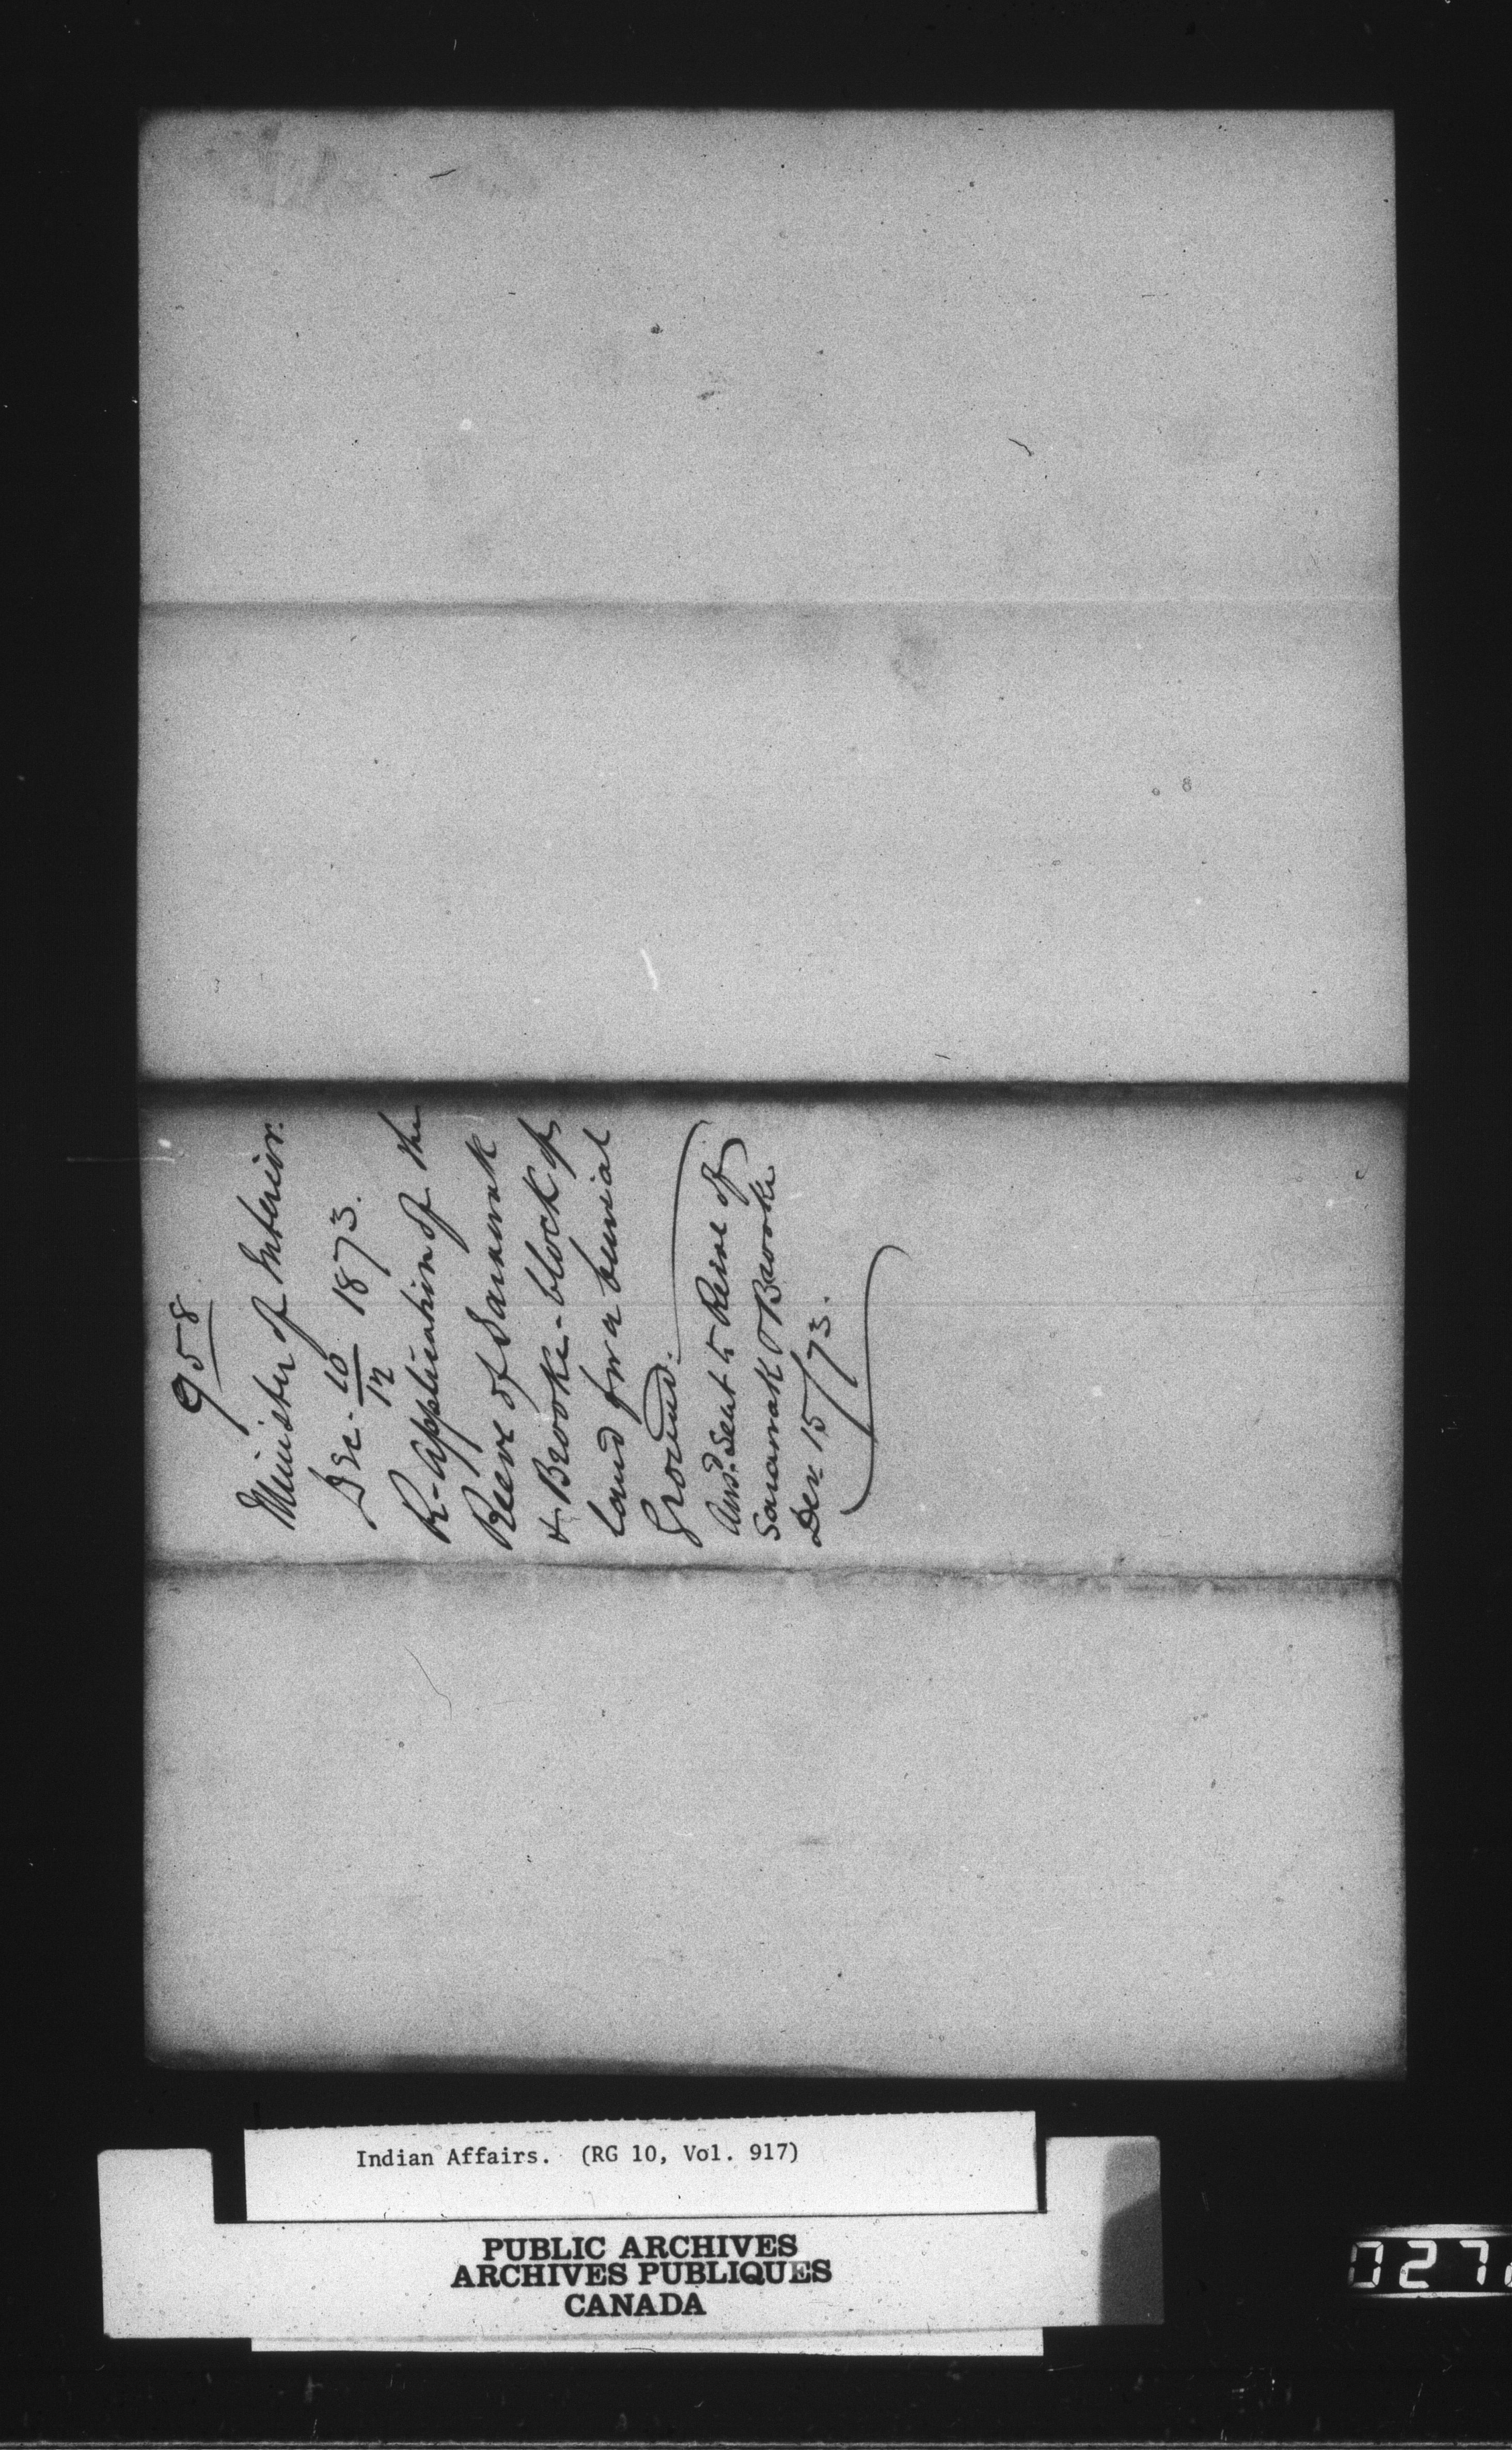 958
Minister of Interior.
Dec. 10/12 1873.
R- Application of the
Reeve of Sarawak
& Brooke - block of
land for a burial
Ground.
Ansd. Sent to Reeve of
Sarawak & Brooke
Dec 15/73.
Indian Affairs. (RG 10, Vol. 917)
PUBLIC ARCHIVES
ARCHIVES PUBLIQUES
CANADA
027